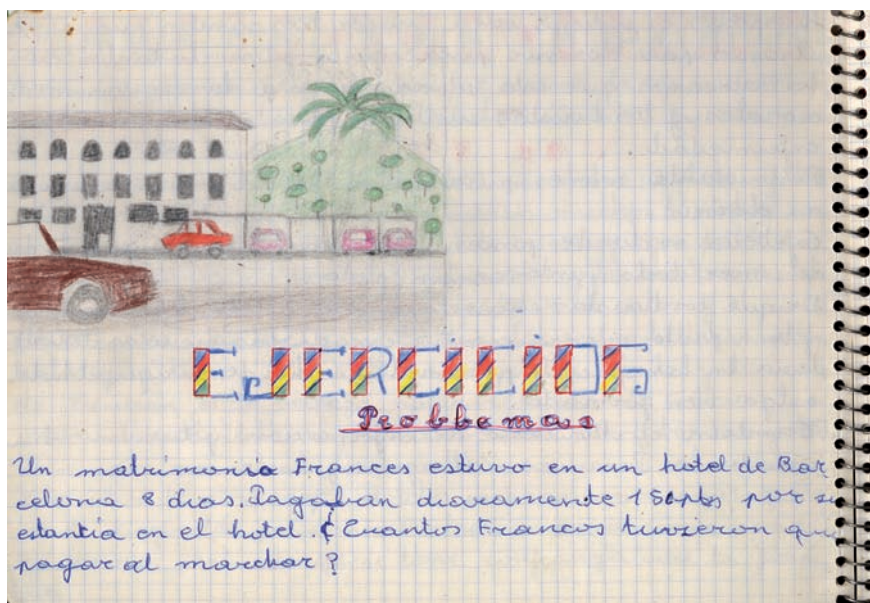 EJERCICIOS
Problemas
Un matrimonio Frances estuvo en un hotel de Bar
celona 8 dias. Pagaban diaramente 150pts por su
estantia en el hotel. ¿Cuantos Francos tuvieron que
pagar al marchar?